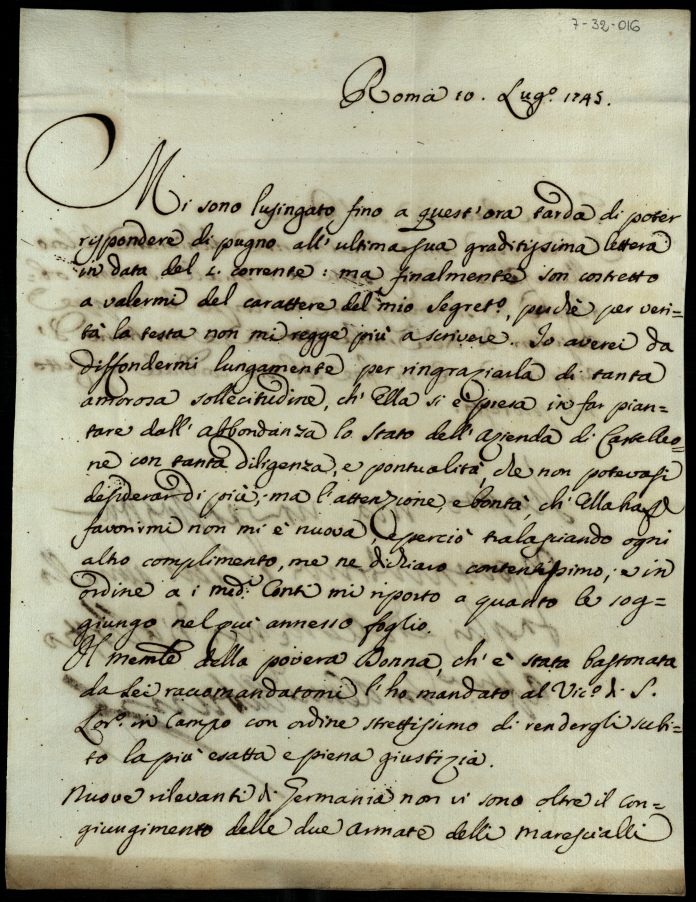 7-32-016
Roma 10. Lug.o 1745.
Mi sono lusingato fino a quest'ora tarda di poter
rispondere di pugno all'ultima sua graditissima lettera
in data del corrente: ma finalmente son costretto
a valermi del carattere del mio Segret.o, perchè per veri=
tà la testa non mi regge più a scrivere. Io averei da
diffondermi lungamente per ringraziarla di tanta
amorosa sollecitudine, ch'Ella si è presa in far pian=
tare dall'Abbondanza lo Stato dell'Azienda di Castelleo=
ne con tanta diligenza, e pontualità, che non potevasi
desiderar di più; ma l'attenzione, e bontà, ch'Ella ha di
favorirmi non mi è nuova, e perciò tralasciando ogni
altro complimento, me ne dichiaro contentissimo; e in
ordine a i med.i Conti mi riporto a quanto le sog=
giungo nel quì annesso foglio.
Il memle della povera Donna, ch'è stata bastonata
da Lei raccomandatomi l'ho mandato al Vic.o di S.
Lor.o in Campo con ordine strettissimo di rendergli subi=
to la più esatta e piena giustizia.
Nuove rilevanti di Germania non vi sono oltre il con=
giungimento delle due Armate delli Marescialli